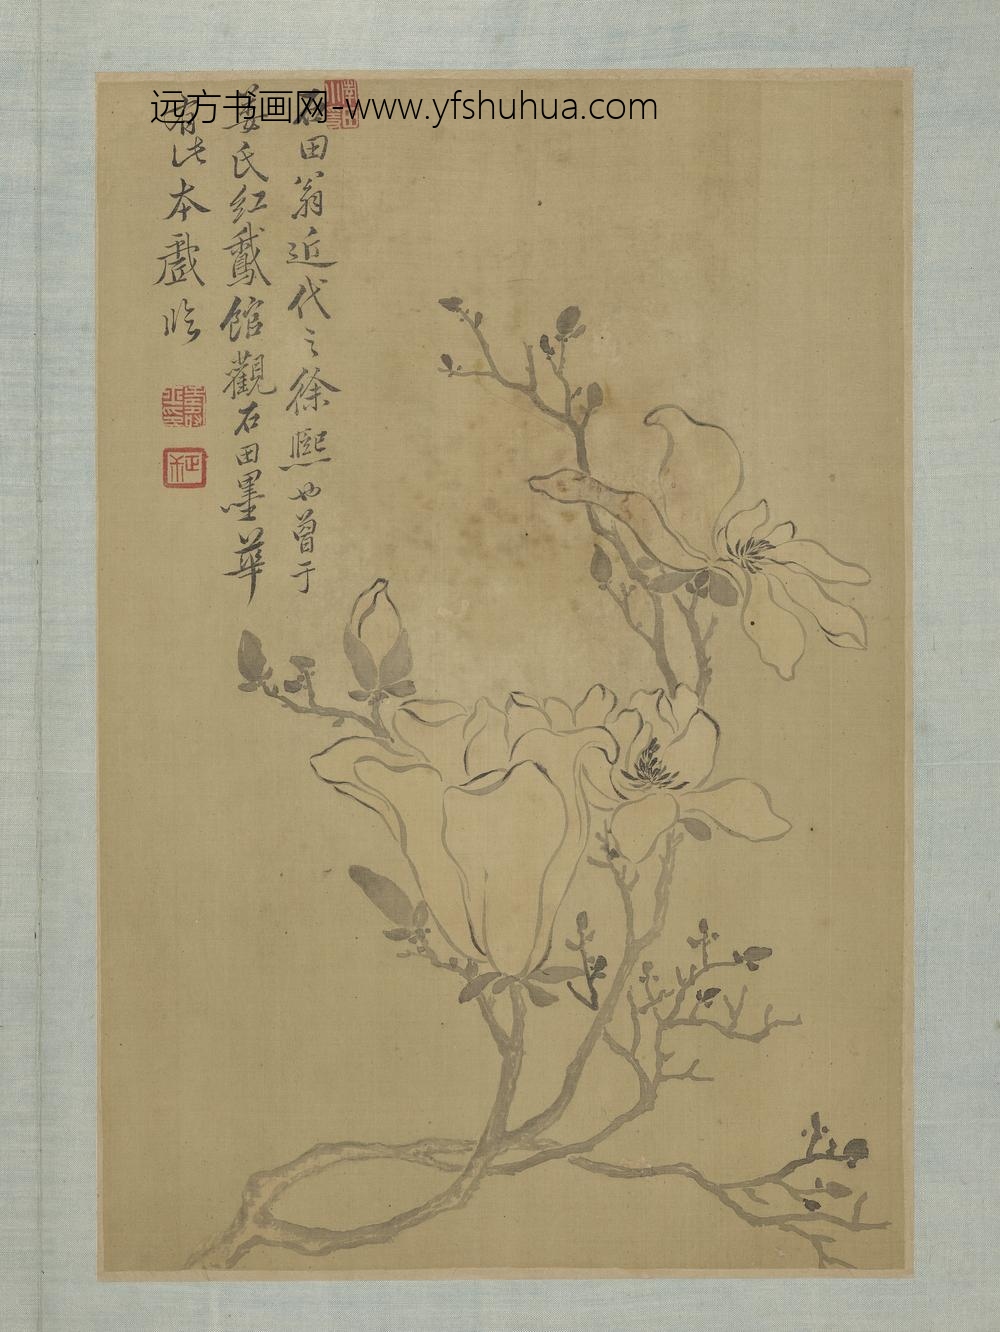 远方书画网-www.yfshuhua.com
石田翁近代之徐熙也曾于
姜氏紅鵞館觀石田墨華
有此本戲臨